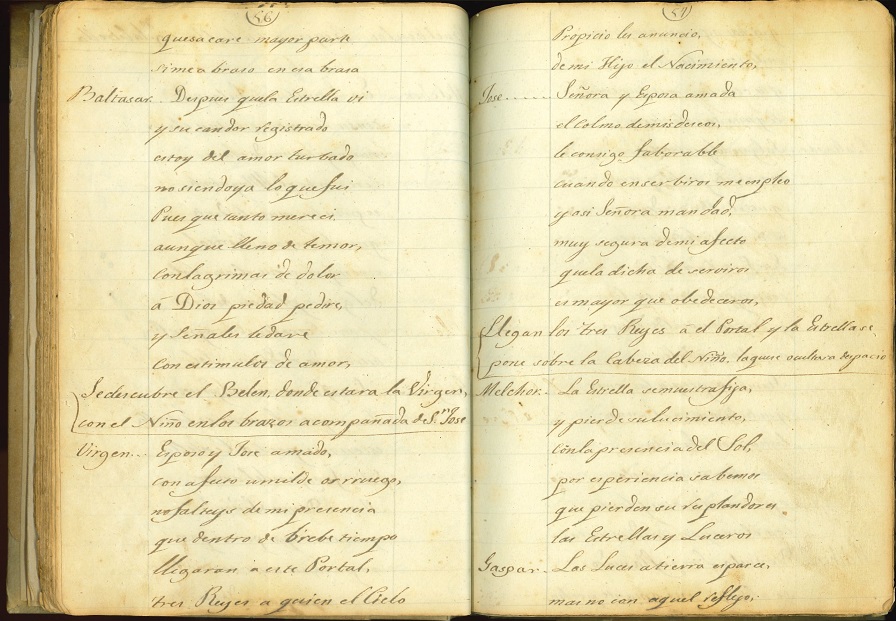 56
quesacare mayor parte
simea braso en esa brasa
Baltasar. Despues quela Estrella vi
y su candor registrado
estoy del amor turbado
no siendo ya lo que fui
Pues que tanto mereci
aunque lleno de temor,
con lagrimas de dolor
á Dios piedad pedire,
y Señales ledare
con estimulos de amor,
Se descubre el Belen, donde estara la Virgen,
con el Niño en los brazos acompañada de S.n Jose
Virgen... Esposo y Jose amado,
con afecto umilde os rruego,
no falteys de mi presencia
que dentro de brebe tiempo
lligaran a este Portal,
tres Reyes a quien el Cielo
57
Propicio les anuncio,
de mi Hijo el Nacimiento,
Jose...... Señora y Esposa amada
el colmo demis deseos,
le consigo faborable
cuando en serbiros me enpleo
y asi Señora mandad,
muy segura demi afecto
quela dicha de serviros
es mayor que obedeceros,
Llegan los tres Reyes á el Portal y la Estrella se
pone sobre la Cabeza del Niño. laquese ocultara despacio
Melchor. La Estrella semuestra fija,
y pierde su lucimiento,
con la presencia del Sol,
por esperiencia sabemos
que pierden su resplandores
las Estrellas y Luceros
Gaspar. Las Luces a tierra esparce,
mas no con aquel reflejo,